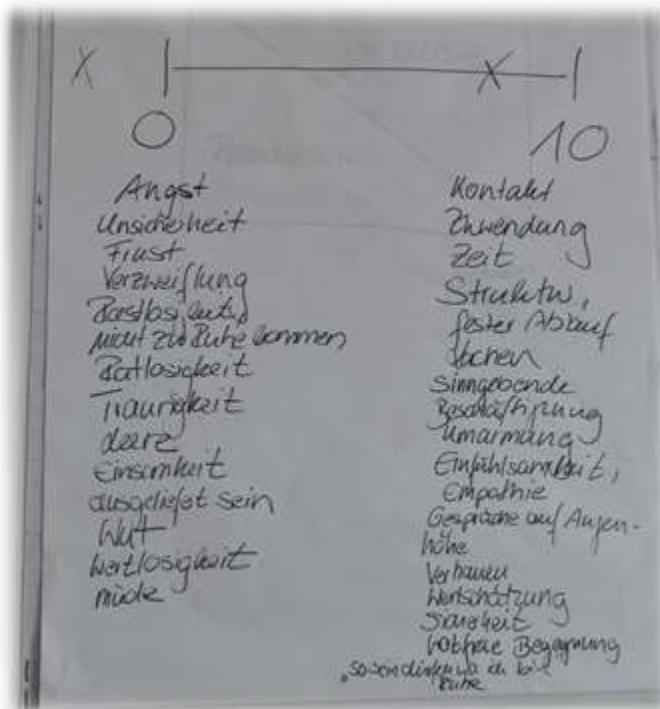 X
X
0
10
Angst
Unsicherheit
Frust
Verzweiflung
Rastlosigkeit,
nicht zur Ruhe kommen
Ratlosigkeit
Traurigkeit
Leere
Einsamkeit
ausgeliefert sein
Wut
Wertlosigkeit
müde
Kontakt
Zuwendung
Zeit
Struktur,
fester Ablauf
Lachen
Sinngebende
Beschäftigung
Umarmung
Einfühlsamkeit,
Empathie
Gespräche auf Augen-
höhe
Vertrauen
Wertschätzung
Sicherheit
Begegnung
Ruhe